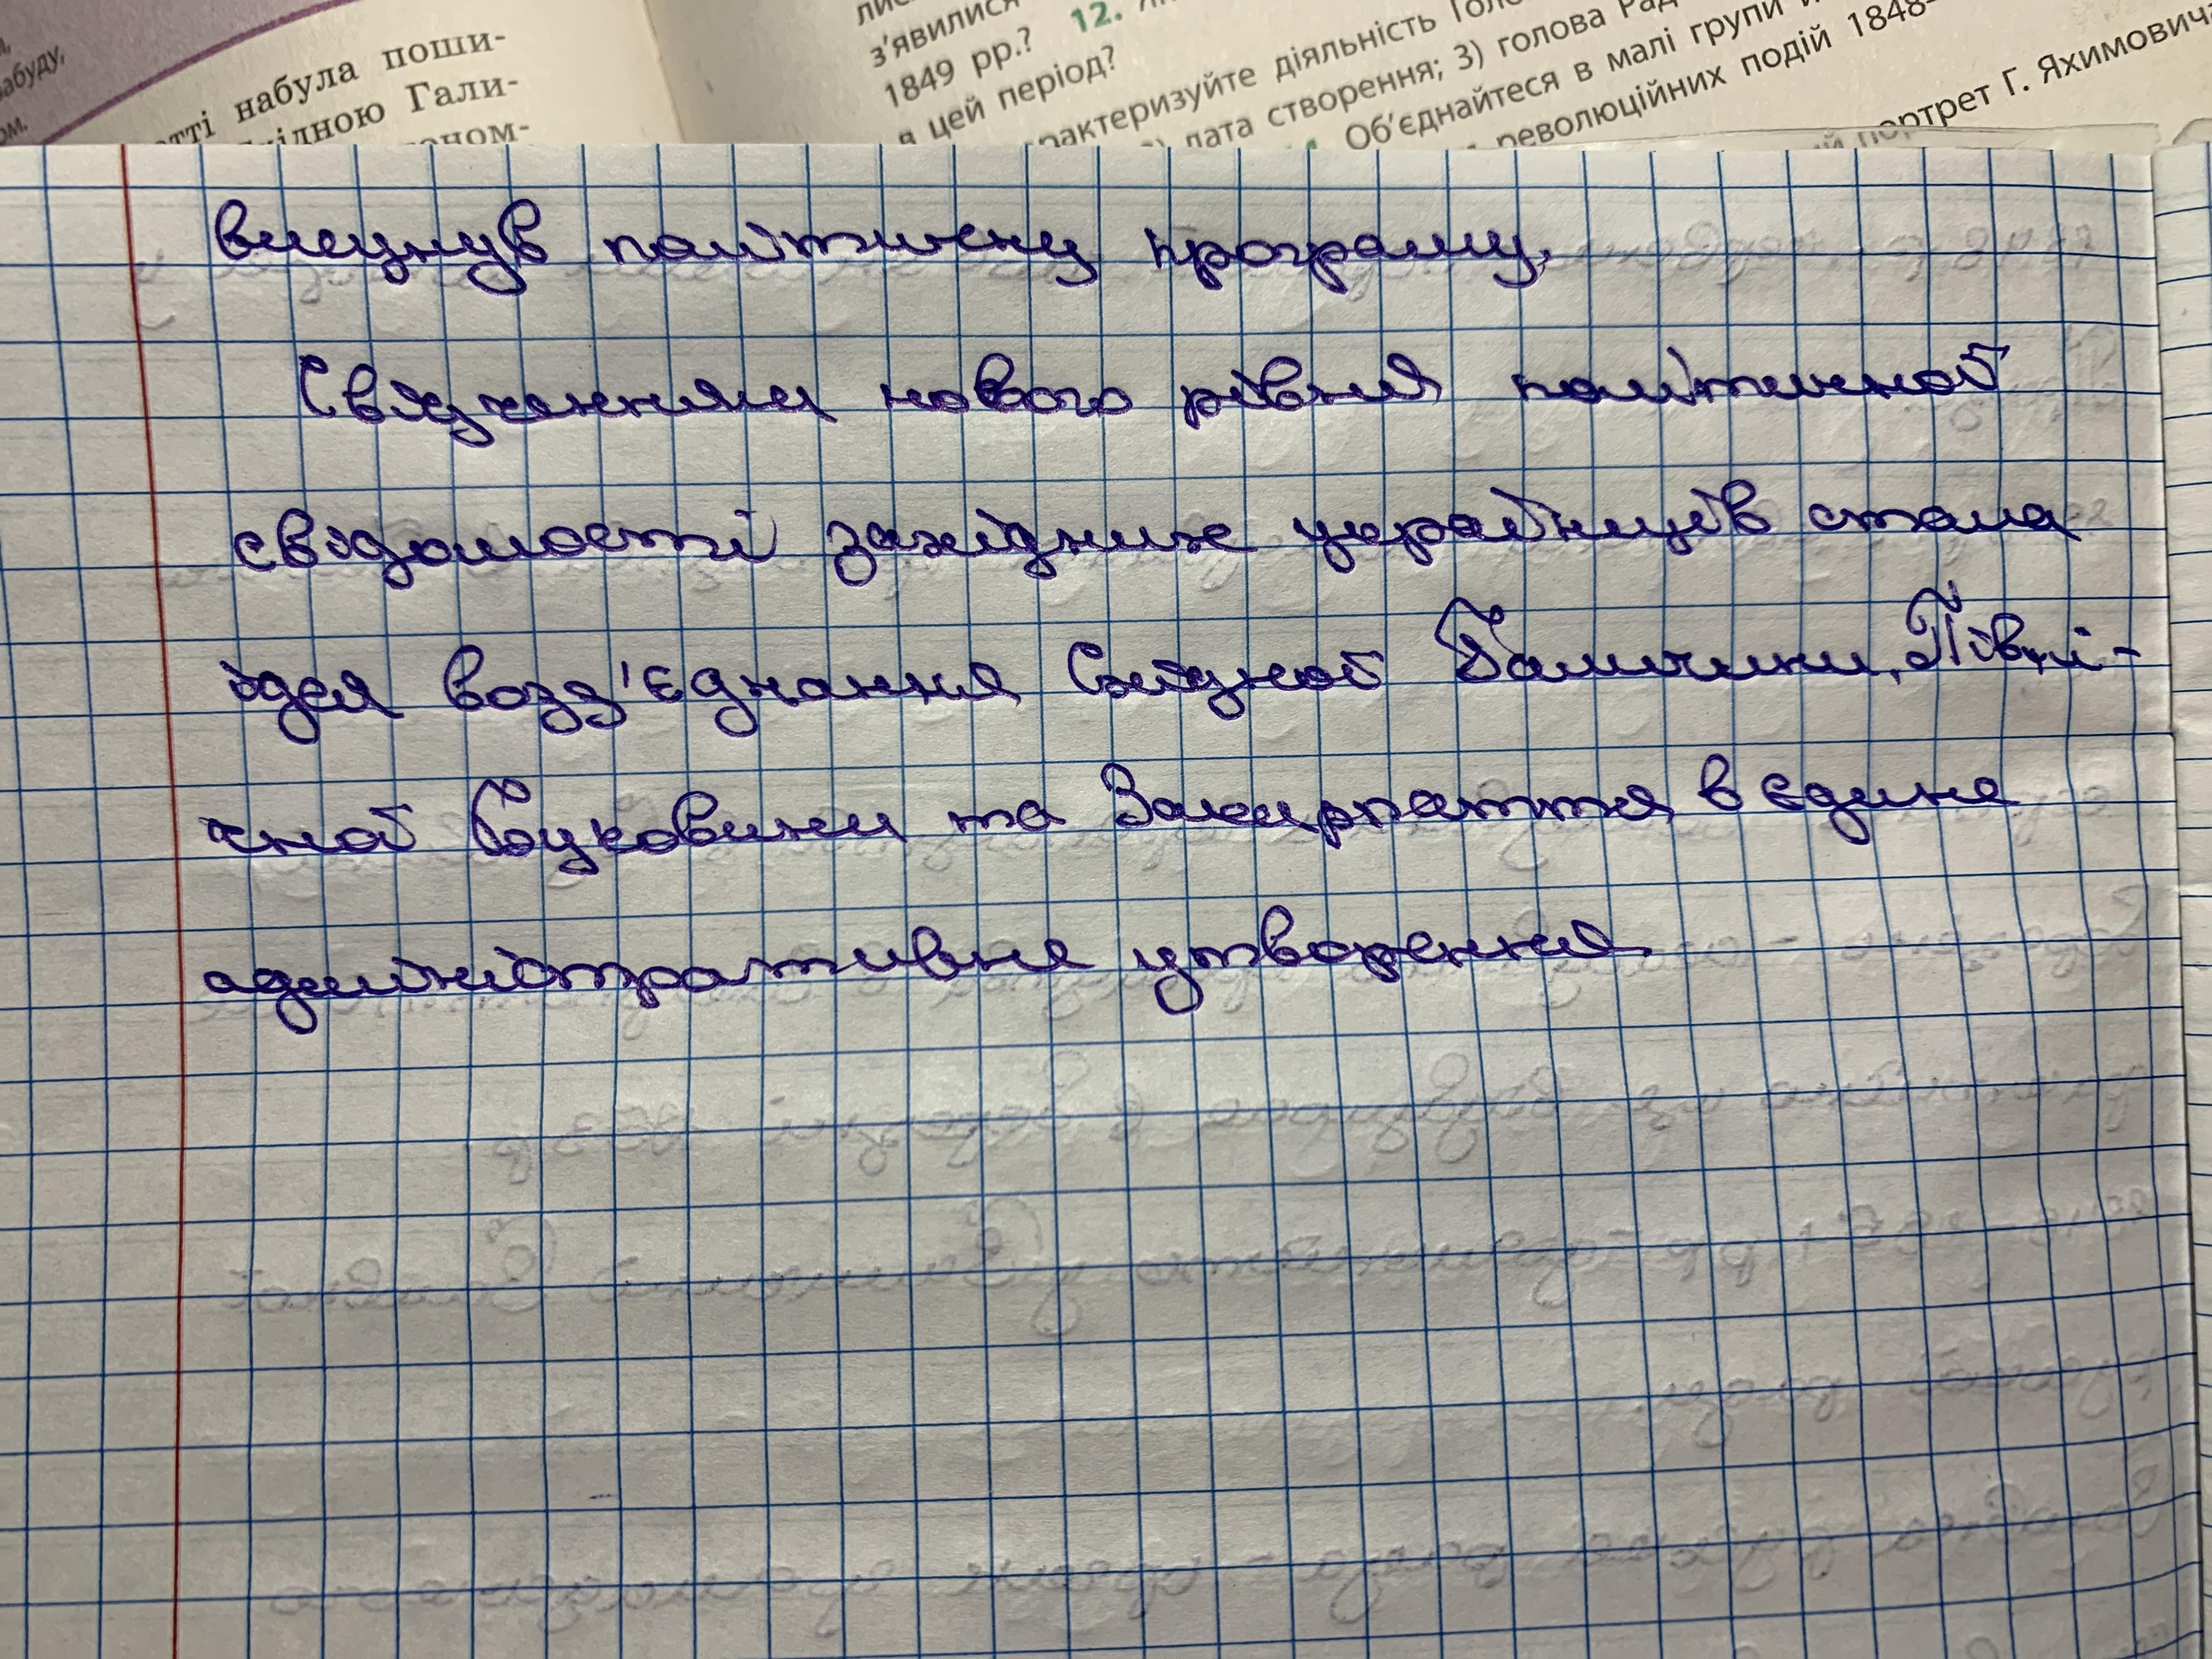 абуду,
ом.
тті набула поши-
хідною Гали-
ном-
з'явилися
1849 рр.? 12.
в цей період?
рактеризуйте діяльність Голо
дата створення; 3) голова Рад
Об'єднайтеся в малі групи
революційних подій 1848-
портрет Г. Яхимовича
висунув політичну програму.
Свідченням нового рівня політичної
свідомості західних українців стала
ідея возз'єднання Східної Галичини, Півні-
чної Буковини та Закарпаття в єдине
адміністративне утворення.